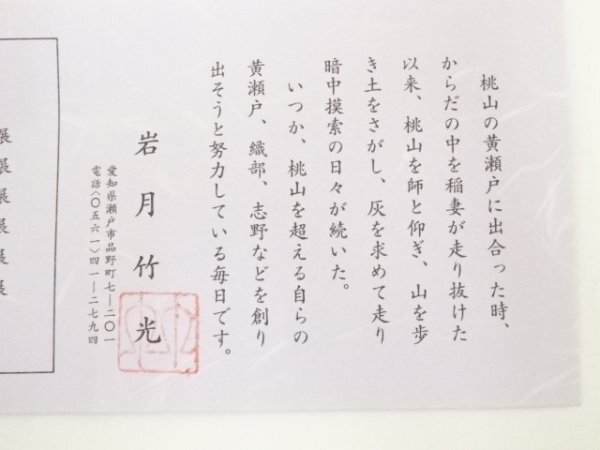 桃山の黄瀬戸に出合った時、
からだの中を稲妻が走り抜けた
以来、桃山を師と仰ぎ、山を歩
き土をさがし、灰を求めて走り
暗中摸索の日々が続いた。
いつか、桃山を超える自らの
黄瀬戸、織部、志野などを創り
出そうと努力している毎日です。
岩月竹光
愛知県瀬戸市品野町七―二〇一
電話〈〇五六一〉四一―二七九四
展
展
展
展
展